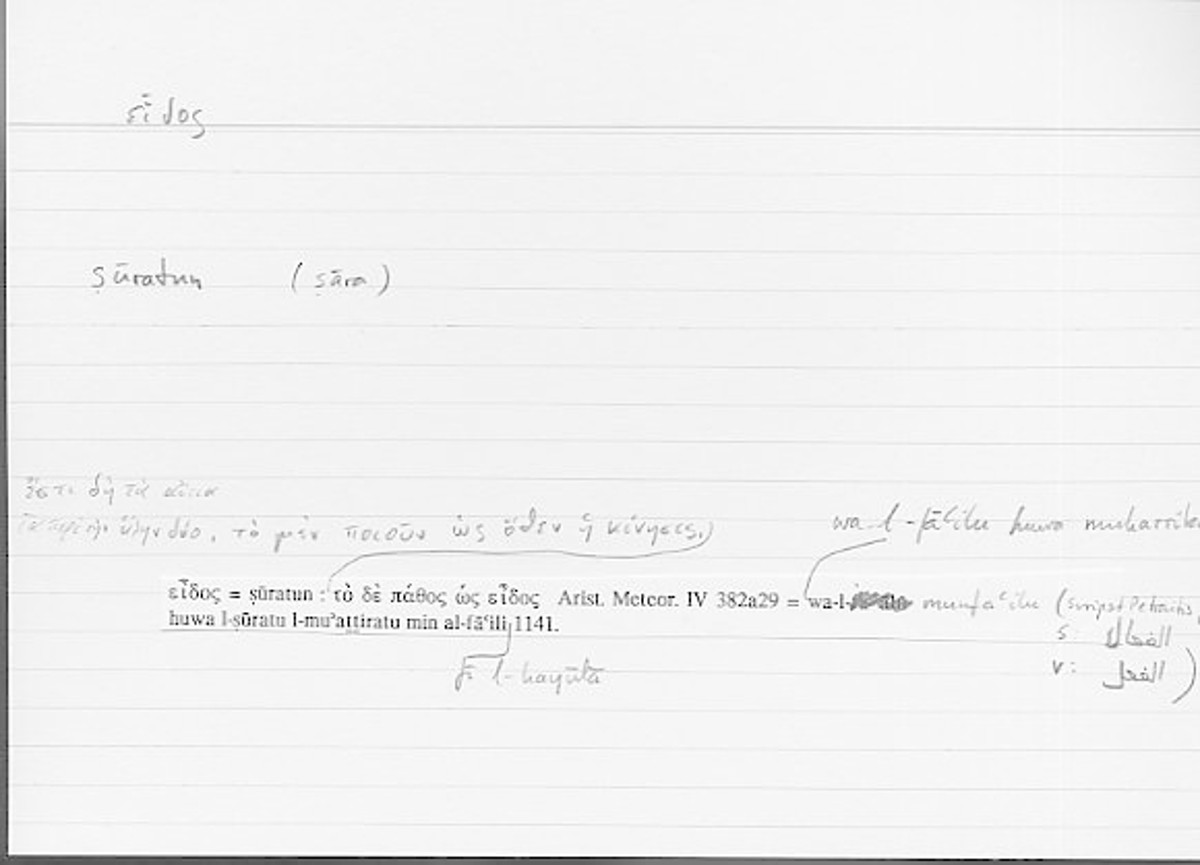 εἶδος
ṣūratun (ṣāra)
ἔστι δὴ τὰ αἴτια
τὰ περὶ τὴν ὕλην δύο, τὸ μὲν ποιοῦν ὡς ὅθεν ἡ κίνησις,)
wa-l-fāʿilu huwa muḥarrik
εἶδος = ṣūratun : τὸ δὲ πάθος ὡς εἶδος Arist. Meteor. IV 382a29 = wa-l- munfaʿilu (scripsi Petraitis,
huwa l-ṣūratu l-muʾaṯṯiratu min al-fāʿili 1141.
s:
v: الفعل )
fī l-hayūlā